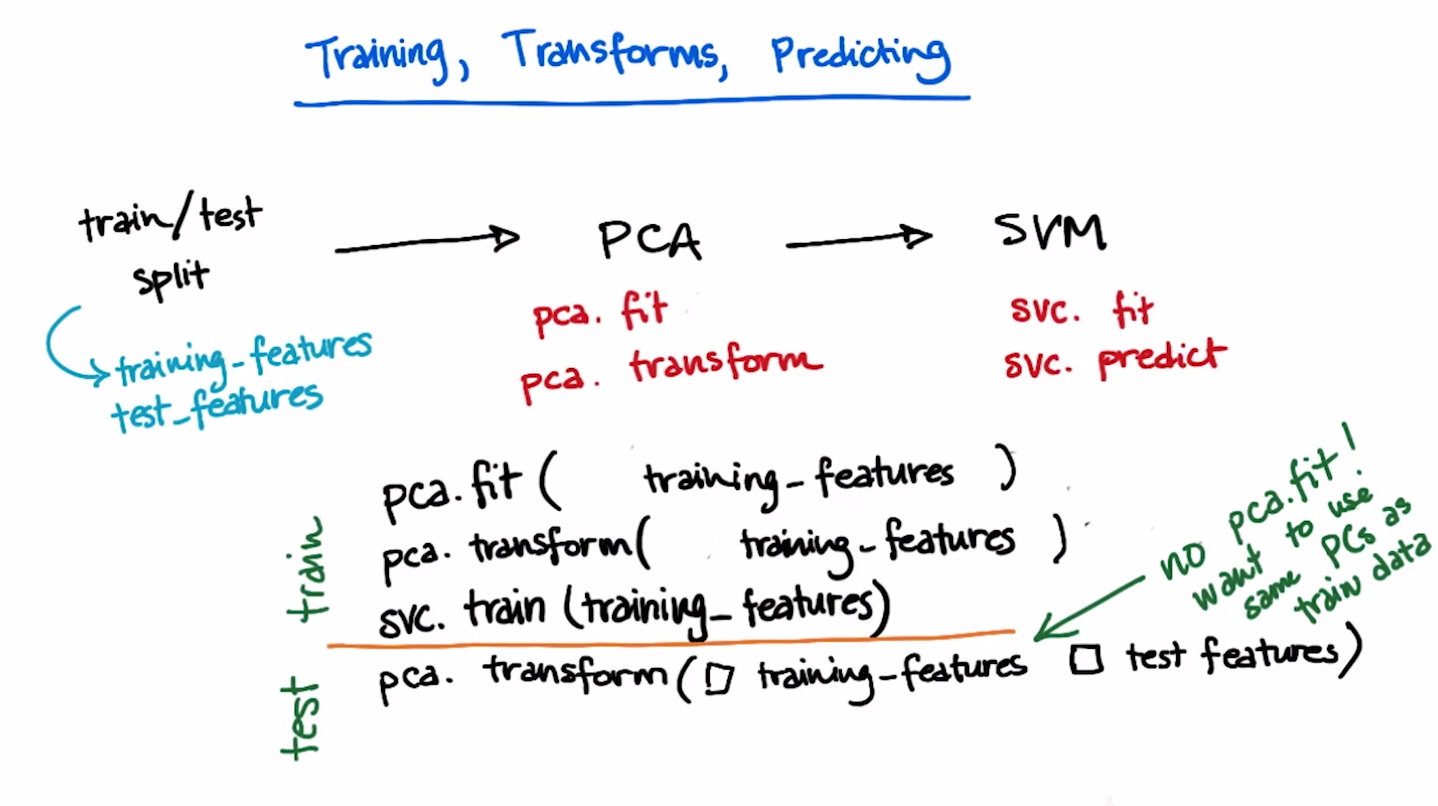 Training, Transforms, Predicting
train/test
split
training_features
test_features
PCA
pca. fit
pca. transform
SVM
svc. fit
svc. predict
train
pca.fit ( training_features )
pca. transform( training_features )
svc. train (training_features)
test
pca. transform( □ training_features □ test features)
no pca.fit!
want to use
same PCs as
train data